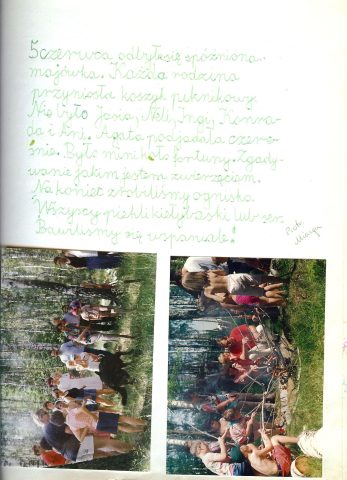 5 czerwca odbyła się spóźniona
majówka. Każda rodzina
przyniosła koszyk piknikowy.
Nie było Josia, Neli, Ingy, Konra-
da i Ani. Agata podjadała czere-
śnie. Było mini koło fortuny. Zgady-
wanie jakim jestem zwierzęciem.
Na koniec zrobiliśmy ognisko.
Wszyscy piekli kiełbaski lub ser.
Bawiliśmy się wspaniale!